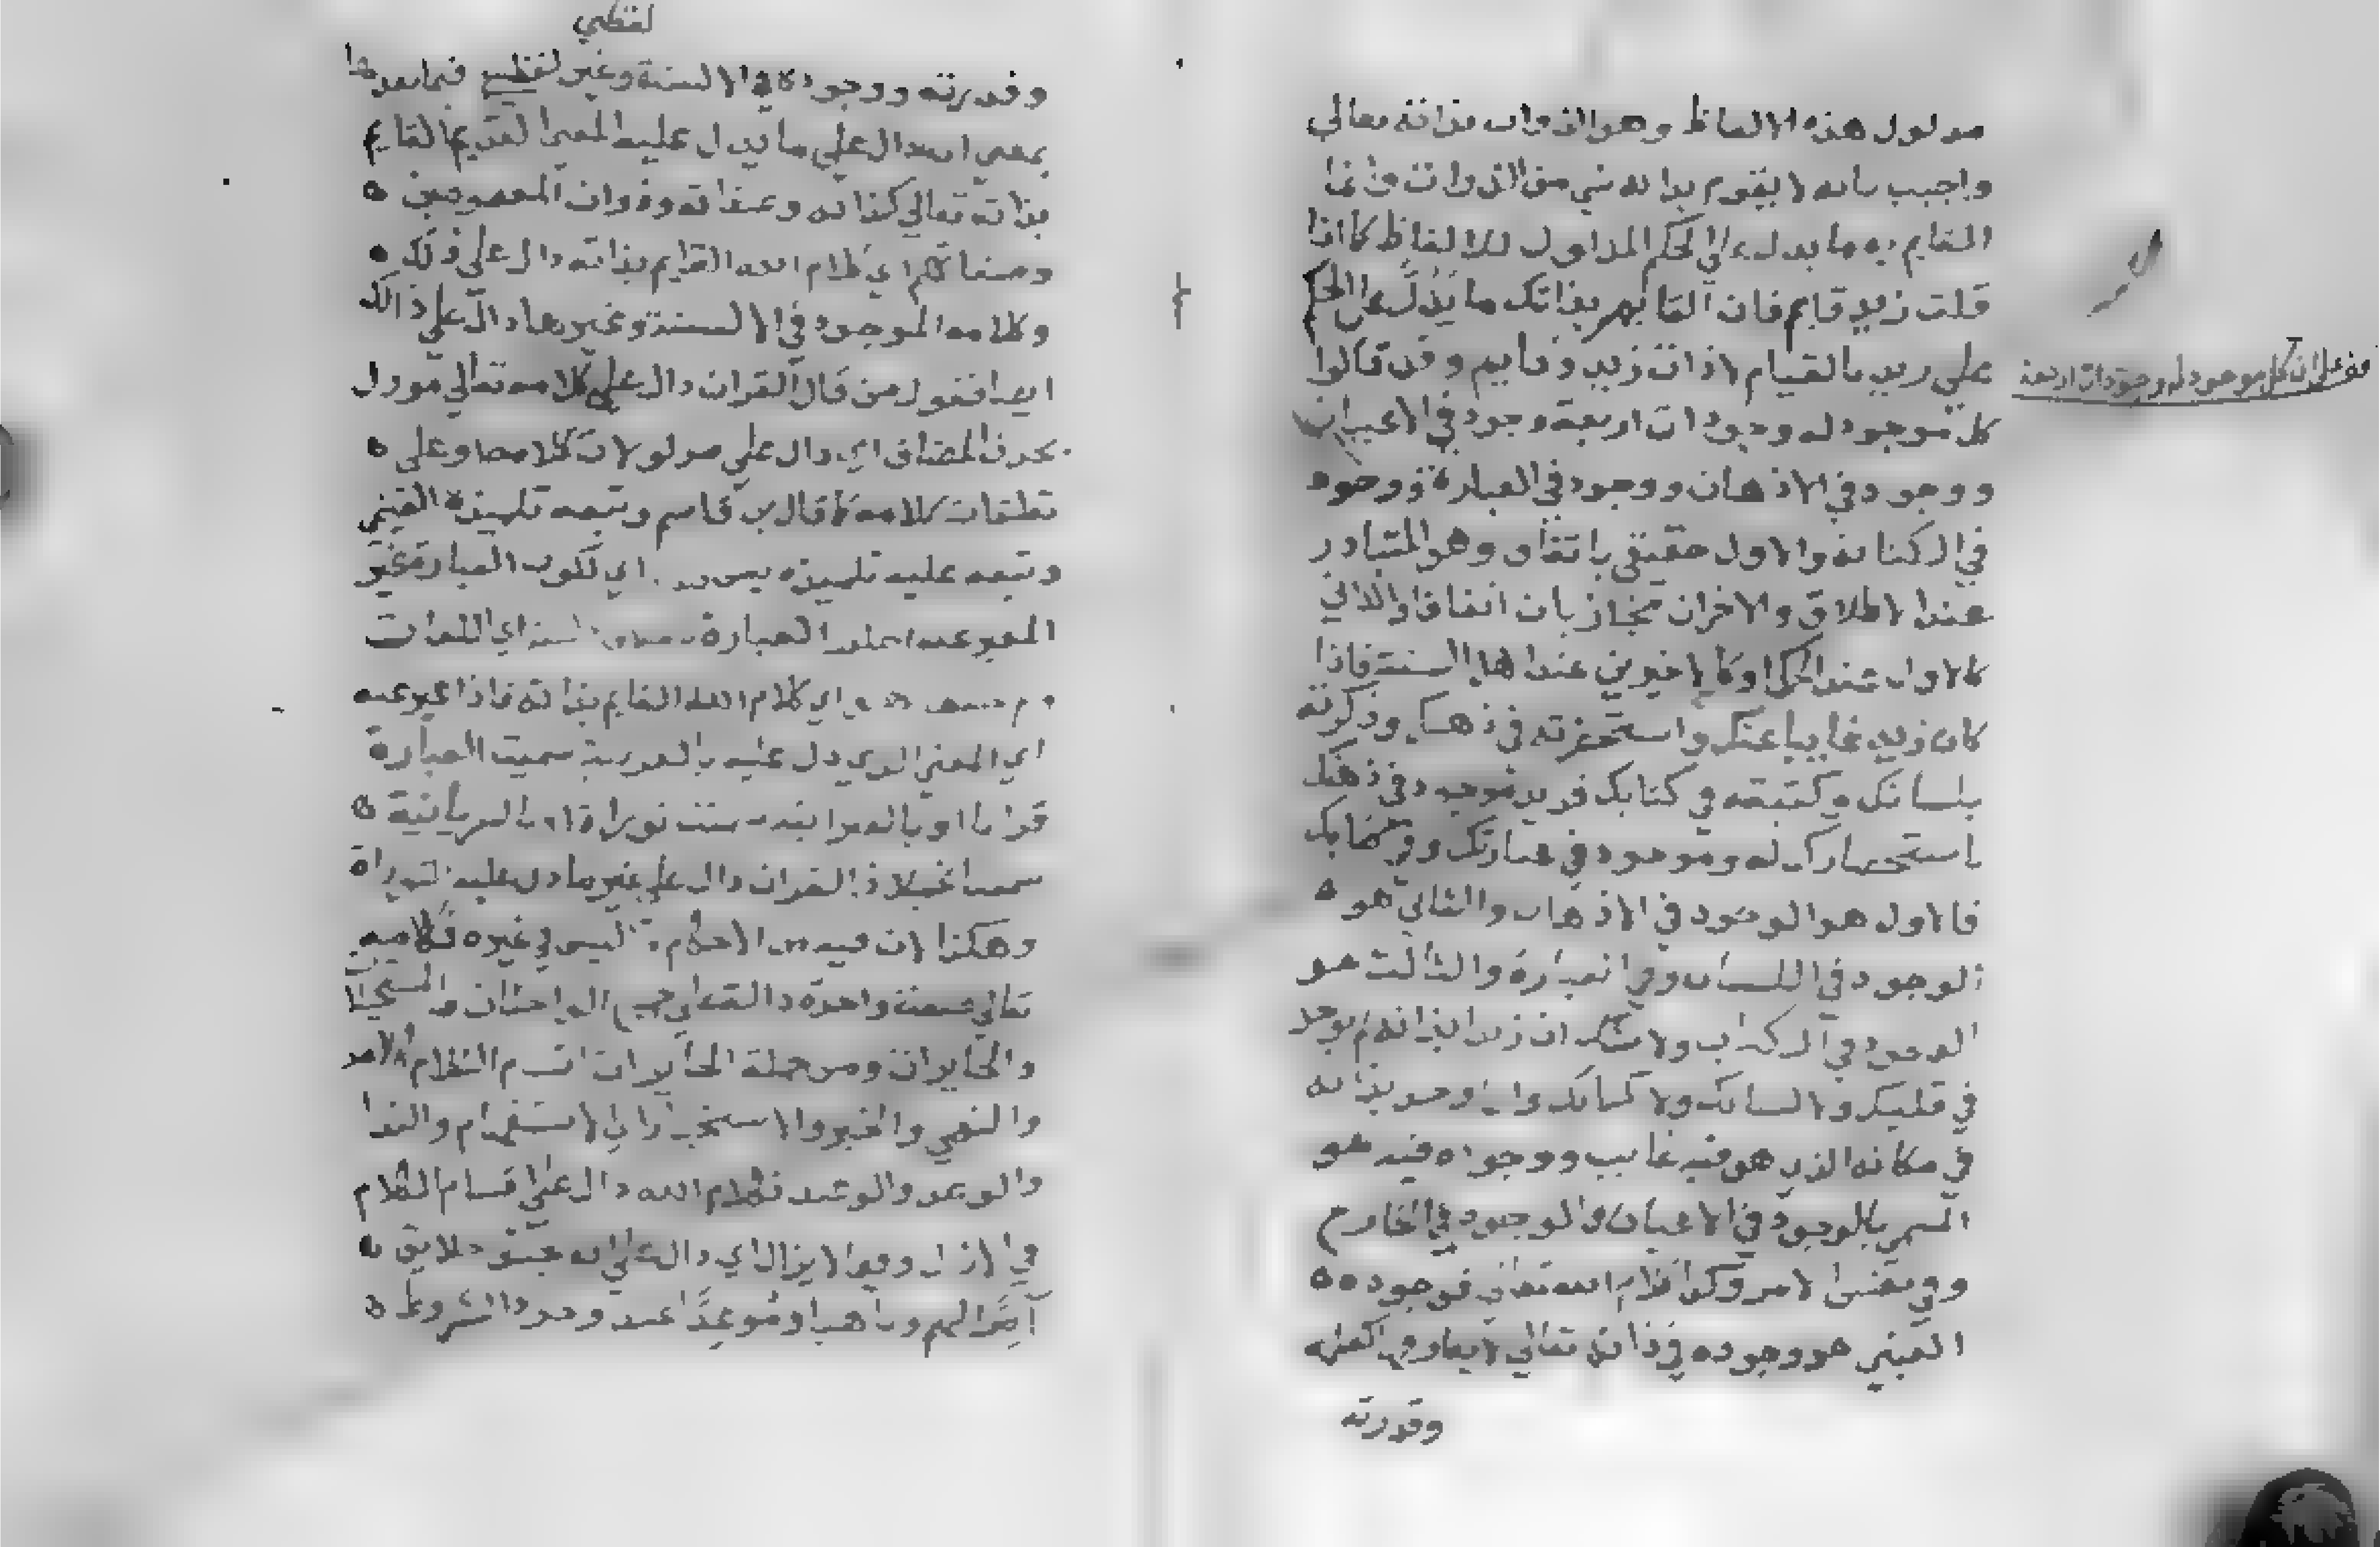 مدلول هذه الالفاظ وهو الذوات بذاته تعالي
واجيب بانه لا يقوم بذاته شي من الذوات وانما
القايم به ما يدل علي الحكم المدلول للالفاظ كما اذا
قلت زيد قايم فان القايم بذاتك ما يدل علي الحكم
علي زيد بالقيام لا ذات زيد وقايم وقد قالوا
كل موجود له وجودات اربعة وجود في الاعيان
ووجود في الاذهان ووجود في العبارة ووجود
في الكتابة والاول حقيقي باتفاق وهو المتبادر
عند الاطلاق والاخران مجازيان اتفاقا والثاني
كالاول عند الحكما وكالاخيرين عند اهل السنة فاذا
كان زيد غايبا عنك واستحضرته في ذهنك وذكرته
بلسانك وكتبته في كتابك فزيد موجود في ذهنك
باستحضارك له وموجود في عبارتك وفي كتابك
فالاول هو الوجود في الاذهان والثاني هو
الوجود في اللسان وفي العبارة والثالث هو
الوجود في الكتاب ولا شك ان زيدا بذاته لم يوجد
في قلبك ولا لسانك ولا كتابك وانما وجد بذاته
في مكانه الذي هو فيه غايب ووجوده فيه هو
المسمي بالوجود في الاعيان والوجود في الخارج
وفي نفس الامر وكذا كلام الله تعالي فوجوده
العيني هو وجوده في ذاته تعالي كعلمه
وقدرته
كل موجود له وجودات اربعة
لفظي
وقدرته ووجوده في الالسنة وغير لفظي فيما بعدها
بمعني انه دال علي ما يدل عليه المعني القديم القايم
بذاته تعالي كذاته وصفاته وذوات المعصومين
وصفاتهم اي كلام الله القايم بذاته دال علي ذلك
وكلامه الموجود في الالسنة وغيرها دال علي ذالك
ايضا فنقول من قال القران دال علي كلامه تعالي مورل
بحذف المضاف اي دال علي مدلولات كلامه وعلي
تعلقات كلامه كما قال بن قاسم وتبعه تلميذه الغنيمي
وتبعه عليه تلميذه يس اي لكون العبارة غير
المعبر عنه العبارة اي اللغات
اي كلام الله القايم بذاته فاذا عبر عنه
اي المعني الذي دل عليه بالعربية سميت العبارة
قرانا او بالعبرانية سميت توراة او بالسريانية
سميت انجيلا فالقران دال علي غير ما دل عليه التوراة
وهكذا لان فيه من الاحكام ما ليس في غيره فكلامه
تعالي صفة واحدة دالة علي جميع الواجبات والمستحيلا
والجايزات ومن جملة الجايزات اقسام الكلام الامر
والنهي والخبر والاستخبار اي الاستفهام والندا
والوعد والوعيد فكلام الله دال علي اقسام الكلام
في الازل وفيما لا يزال اي دال علي انه
آمرا لهم وناهيا وموعدا عند وجود الشروط